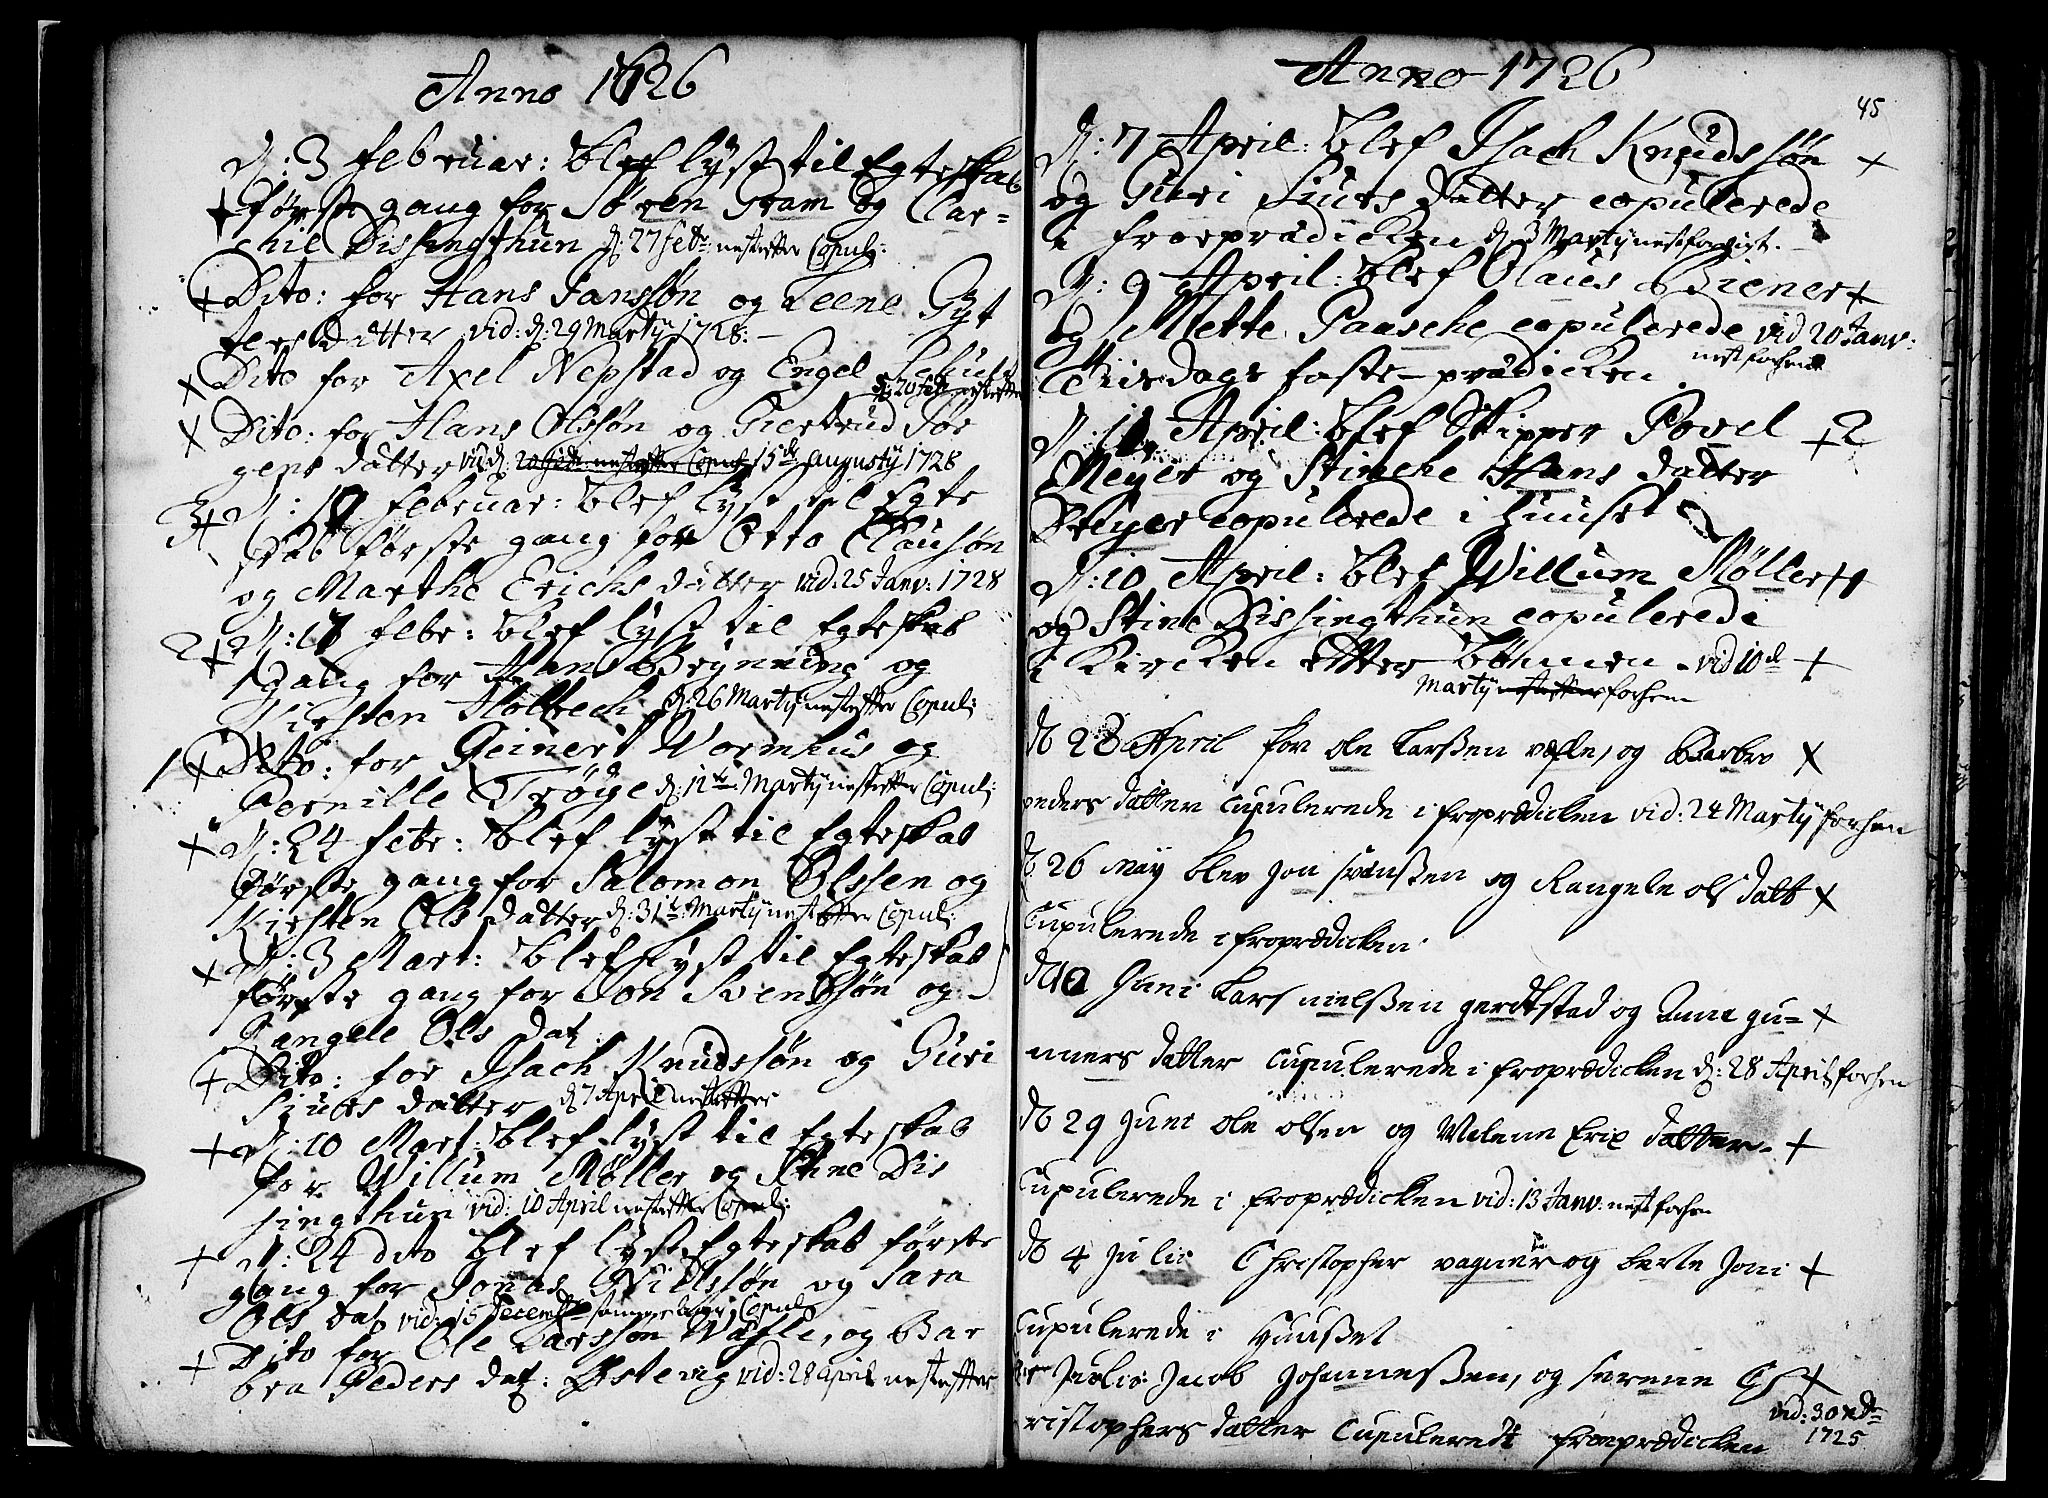 Anno 1726
D: 3 Februar: blef lyst til Egteskab
første gang for Søren Gram og Car-
chil Dissingthun d: 27 febr: nestefter Copul:
Dito: for Hans Janssøn og Leene Gyt
ters datter vid: d: 29 Marty 1728:
Dito for Axel Nepstad og Engel
d: 20 nestefter
Dito: for Hans Olssøn og Giertrud Jør
gens datter vid d: 20 nestefter Copul: 15de Augusty 1728
D: 17 Februar: blef lyst til Egte
skab første gang for Otto Clausøn
og Marthe Erichs datter vid: 25 Janv: 1728
D: 17 Febr: blef lyst til Egteskab
1 gang for Hans Bryning og
Kirsten Holbech d: 26 Marty nestefter Copul:
Dito: for Geinert Wormhus og
Pernille Trøye d: 12te Marty nestefter Copul:
D: 24 Febr: blef lyst til Egteskab
første gang for Salomon Olssen og
Kirsten Ols datter d: 31te Marty nestefter Copul:
D: 3 Mart: blef lyst til Egteskab
første gang for Jon Svendsøn og
Rangele Ols dat:
Dito: for Isach Knudssøn og Guri
Siurs datter d 7 April nestefter
D: 10 Mart: blef lyst til Egteskab
for Willum Møller og Stine Dis
singthun vid: 10 April nestefter Copul:
D: 24 dito blef lyst Egteskab første
gang for Jonas Nillssøn og Sara
Ols dat vid: 15 December Copul:
Dito for Ole Larssøn Wafle, og Bar
bra Peders dat: Østevig vid: 28 April nestefter
Anno 1726
45
D: 7 April: blef Isach Knudssøn
og Guri Siurs datter copulerede
i froeprædicken d 3 Marty nest forvist.
D: 9 April: blef Olaus Biener
og Mette Paasche copulerede vid 20 Janv:
nest forhen
Tiisdags faste-prædicken.
D: 11 April: blef Skipper Povel 2
Meyer og Stinche Hans datter
Meyer copulerede i huuset
D: 10 April: blef Willum Møller
og Stine Dissingthun copulerede
i Kircken effter bønnen. vid 10de
Marty nestefter forhen
D 28 April for ole Larssen vafle, og Barbro
peders datter Cupulerede i froprædicken vid: 24 Marty forhen
D 26 may blev Jon svenssen og Rangele ols datt
Cupulerede i froprædicken
D 10 Juni Lars nielssen gerdtstad og Anne gu=
nners datter Cupulerede i froprædicken d: 28 April forhen
D 29 Juni ole olsen og Malene Erix datter.
Cupulerede i froprædicken vid: 13 Janv: nest forhen
D 4 Julii Christopher vagner og berte Joni
Cupulerede i Huusset
Julii Jacob Johannessen, og serene Ch
ristophers datter Cupulerede froeprædicken
vid: 30
1725